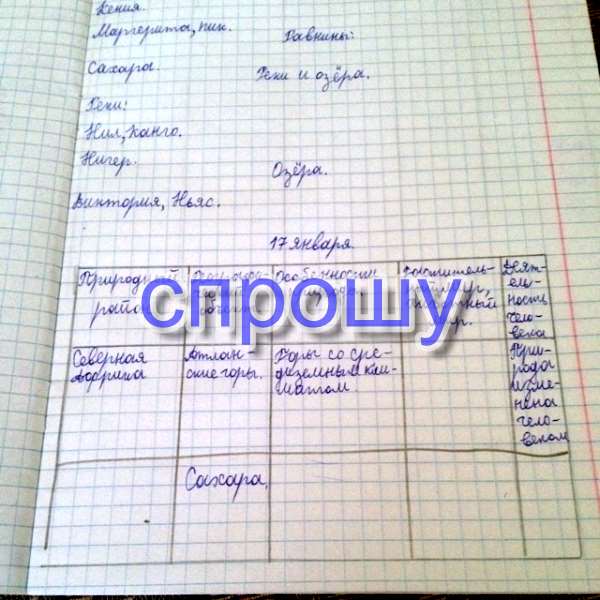 Кения.
Маргерита, пик.
Равнины:
Сахара.
Реки и озёра.
Реки:
Нил, Канго.
Нигер.
Озёра.
Виктория, Ньяс.
17 января.
Природный
район
Особенности
Деят-
ель-
ность
чело-
века
Северная
Африка
Атлан-
ские горы.
Горы со сре-
диземным кли-
матом.
При-
рода
изме-
нена
чело-
веком
Сахара.
спрошу